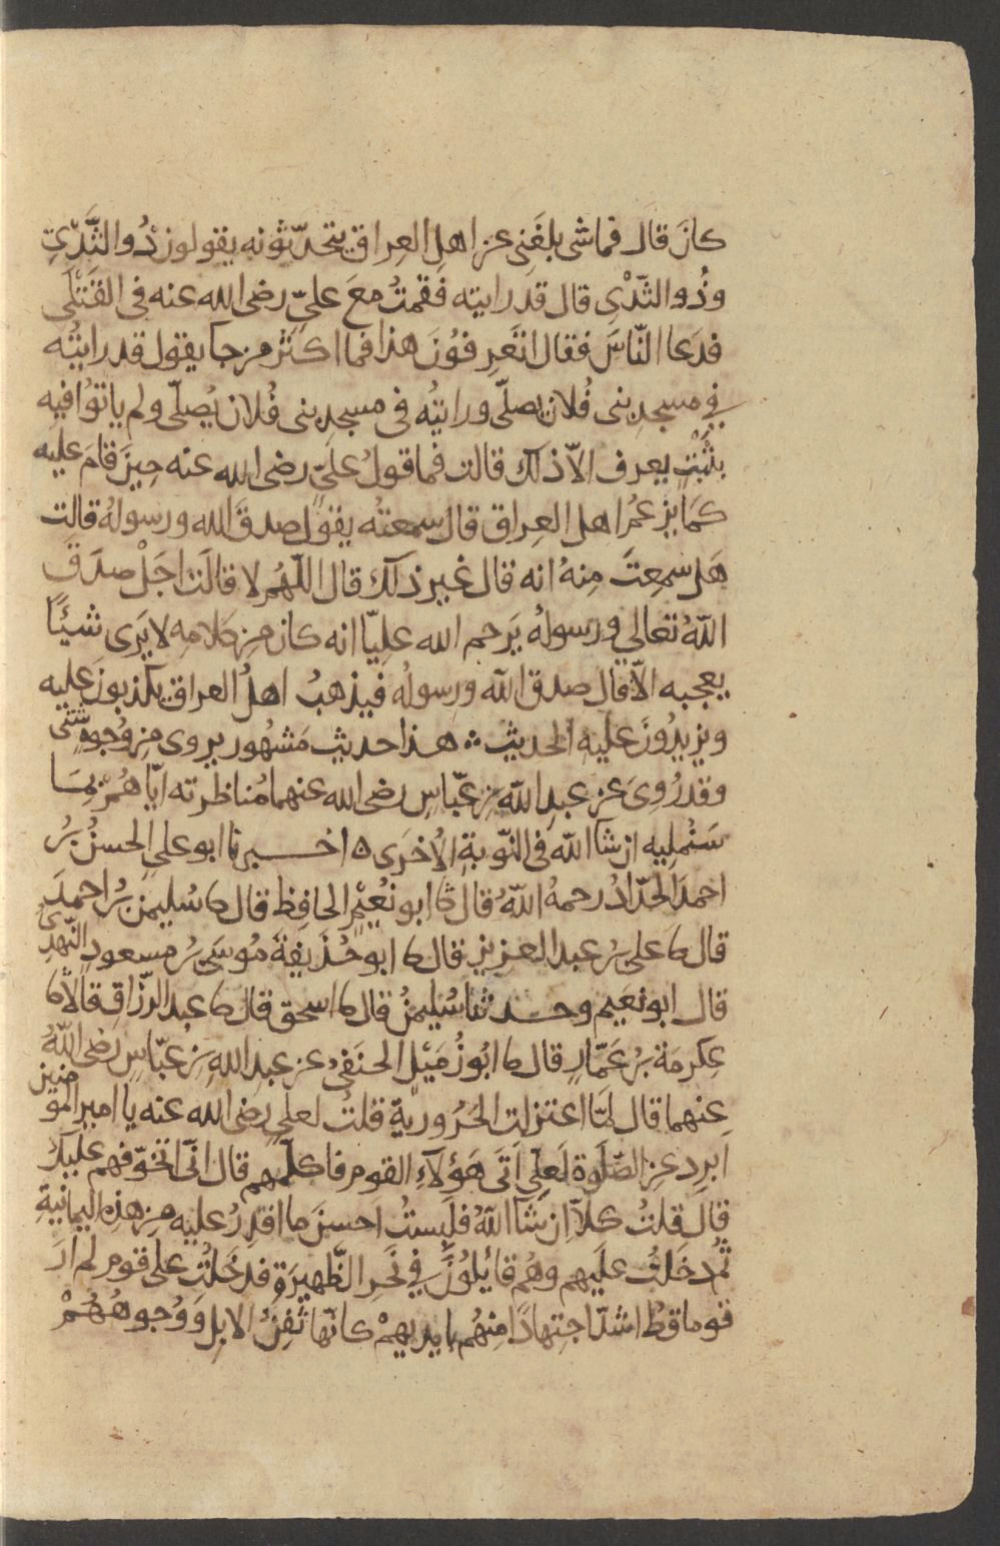 كانَ قال فما شى بلغَنِى عن اهلِ العِراقِ يتحدّثونه يقولون ذُو الثُّدَىِّ
وذُو الثّدْىِ قال قد رايته فقمتُ معَ علىٍّ رضى الله عنه فى القَتْلَى
فدَعا النّاسَ فقال اتَعرِفُونَ هذا فما اكثر من جا يقول قد رايتُه
فى مسجد بنى فُلان يصلّى ورايتُه فى مسجدِ بنى فُلان يُصلّى ولم ياتوُا فيه
بثَبْتٍ يعرف الاّ ذلك قالت فما قولُ علىٍّ رضى الله عنه حِينَ قامَ عليه
كمَا يزعمُ اهل العِراق قال سمعتُه يقول صدقَ الله ورسولهُ قالت
هَل سمِعتَ مِنهُ انه قال غير ذلك قال اللّهُمّ لا قالَت اجَلْ صدَقَ
اللهُ تعالى ورسولهُ يَرحم الله عليّا انه كان من كلامِه لا يَرى شيئًا
يعجبه الاّ قال صدق الله ورسولُه فيذهبُ اهلُ العراق يكذبونَ عليه
ويزيدُونَ عليه الحديثَ ∴ هذا حديث مَشهُور يروى من وُجوهٍ شتّى
وقد رُوىَ عن عبدِ اللهِ بن عبّاسٍ رضى الله عنهما مُناظرته ايّاهُمْ بمَا
سَنُملِيه ان شا الله فى النّوبةِ الاُخرَى ٥ اخبرنا ابو علىٍ الحسنُ بنُ
احمدَ الحدّادُ رحمهُ اللهُ قال ثا ابو نُعيْمٍ الحافِظ قال ثا سُليمن بنُ احمدَ
قال ثا على بنُ عبد العزيز قال ثا ابو حُذَيفةَ مُوسَى بنُ مسعودٍ النّهدِىُّ
قال ابو نعيم وحدثنا سُليمنُ قال ثا اسحق قال ثا عبد الرّزاقِ قالاَ ثا
عِكرمَة بنُ عَمّارٍ قال ثا ابُو زُمَيْل الحنَفىُّ عن عبد اللهِ بن عبّاسٍ رضى اللهُ
عنهما قال لمّا اعتزلتِ الحَرُوريّة قلتُ لعلىٍ رضى الله عنه يا امير المومنين
ابرِد عنِ الصّلَوة لَعلّى اتَى هَؤلآءِ القومِ فاكلّمهم قال انّى اتخوّفهم عليكَ
قال قلتُ كلاّ ان شآ اللهُ فلَبِستُ احسنَ ما اقدِرُ عليه من هذِه اليمانيةِ
ثُمّ دخَلتُ علَيهم وهُم قائلُونَ فى نَحرِ الظّهيرَةِ فدخلْتُ على قوم لم ارَ
قوما قطُ اشدّ اجتِهادًا مِنهُم ايديهمْ كانّها ثَفِنُ الابل وَوُجوهُهُمْ